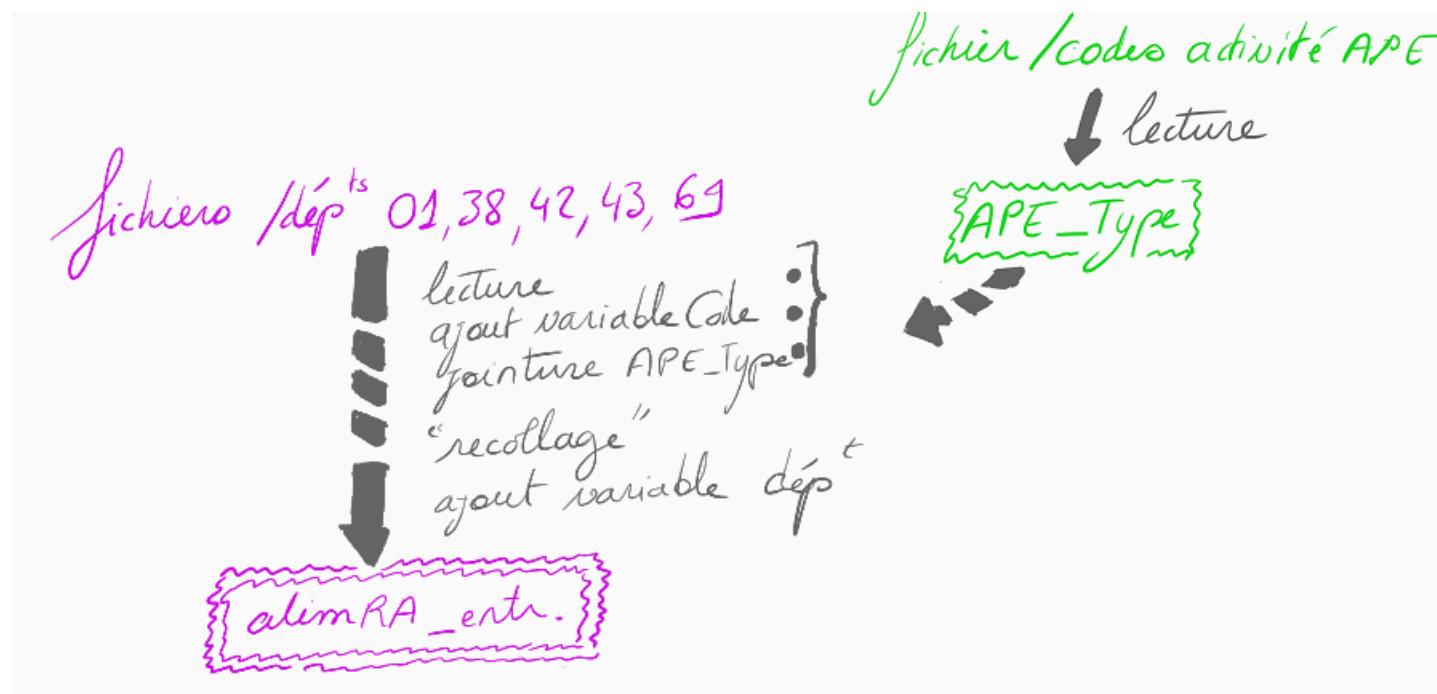 fichier /codes activité APE
lecture
APE_Type
fichiers /dépts 01, 38, 42, 43, 69
lecture
ajout variable Code
jointure APE_Type
"recollage"
ajout variable dépt
alimRA_entr.